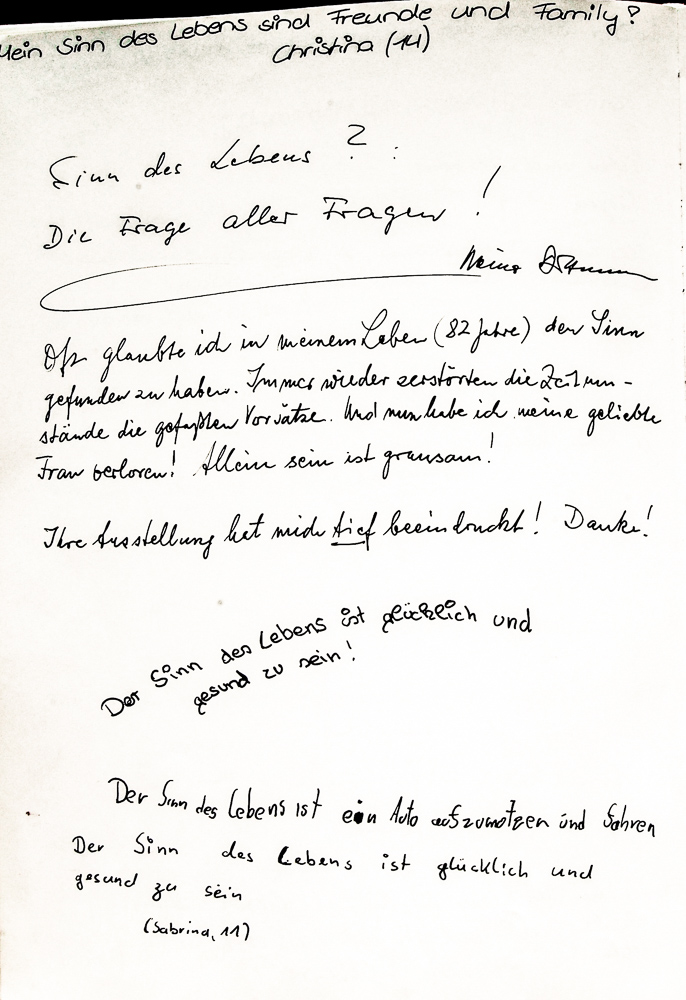 Mein Sinn des Lebens sind Freunde und Family?
Christina (14)
Sinn des Lebens ? :
Die Frage aller Fragen !
Oft glaubte ich in meinem Leben (82 Jahre) den Sinn
gefunden zu haben. Immer wieder zerstörten die Zeitum-
stände die gefaßten Vorsätze. Und nun habe ich meine geliebte
Frau verloren! Allein sein ist grausam!
Ihre Ausstellung hat mich tief beeindruckt! Danke!
Der Sinn des Lebens ist glücklich und
gesund zu sein!
Der Sinn des Lebens ist ein Auto aufzumotzen und fahren
Der Sinn des Lebens ist glücklich und
gesund zu sein
(Sabrina, 11)